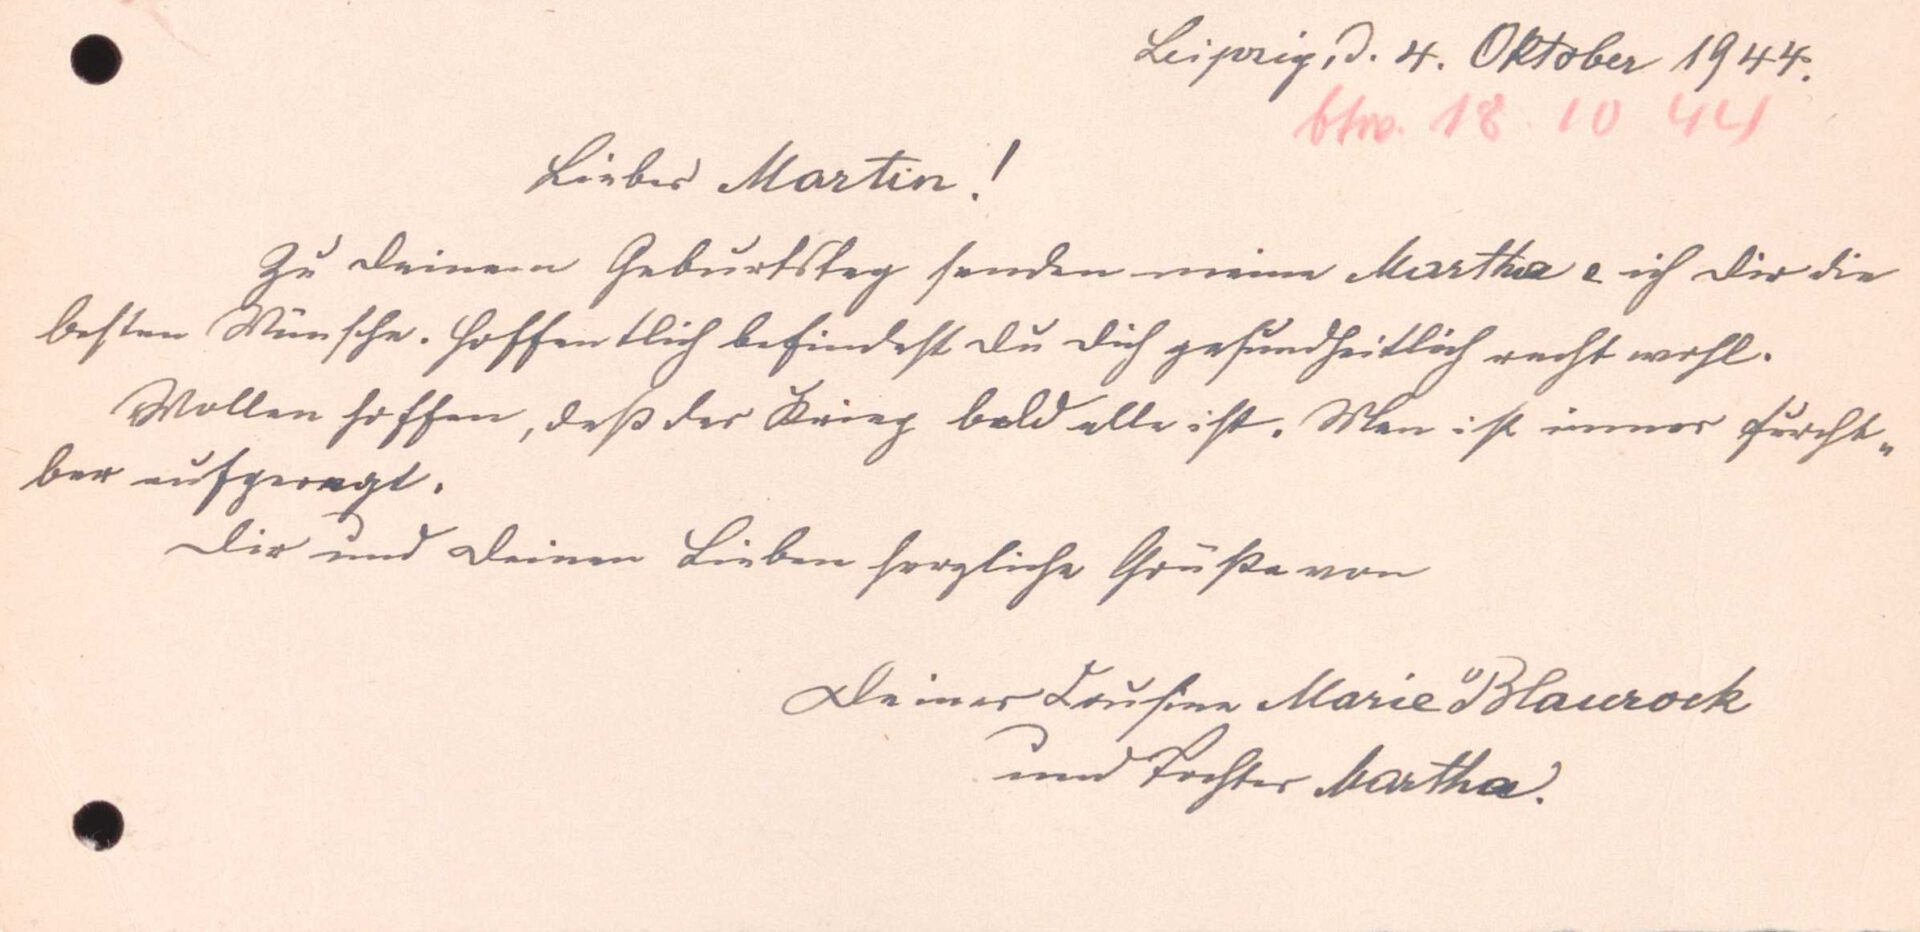 Leipzig, d. 4. Oktober 1944.
btw. 18 10 44
Lieber Martin!
Zu Deinem Geburtstag senden meine Martha & ich Dir die
besten Wünsche. Hoffentlich befindest Du Dich gesundheitlich recht wohl.
Wollen hoffen, daß der Krieg bald alle ist. Man ist immer furcht„
bar aufgeregt.
Dir und Deinen Lieben herzliche Grüße von
Deiner Cousine Marie Blaurock
und Tochter Martha.